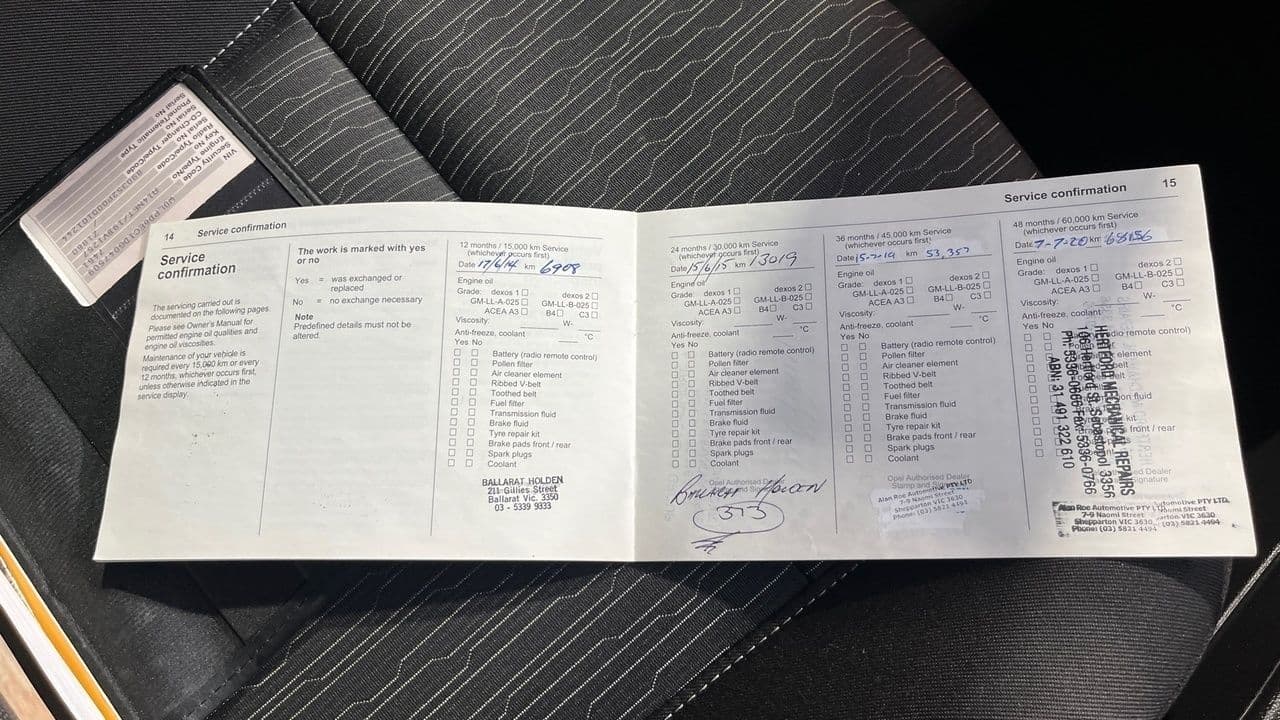 VIN
Security Code
Engine Type/No
Key No
Radio Type/Code
Serial No
CD-Changer Type/Code
Serial No
Phone/Telematic Type
Serial No
14 Service confirmation
Service
confirmation
The servicing carried out is
documented on the following pages.
Please see Owner's Manual for
permitted engine oil qualities and
engine oil viscosities.
Maintenance of your vehicle is
required every 15,000 km or every
12 months, whichever occurs first,
unless otherwise indicated in the
service display.
The work is marked with yes
or no
Yes = was exchanged or
replaced
No = no exchange necessary
Note
Predefined details must not be
altered.
12 months / 15,000 km Service
(whichever occurs first)
Date 17/6/14 km 6908
Engine oil
Grade: dexos 1 dexos 2
GM-LL-A-025 GM-LL-B-025
ACEA A3 B4 C3
Viscosity: W-
Anti-freeze, coolant °C
Yes No
Battery (radio remote control)
Pollen filter
Air cleaner element
Ribbed V-belt
Toothed belt
Fuel filter
Transmission fluid
Brake fluid
Tyre repair kit
Brake pads front / rear
Spark plugs
Coolant
BALLARAT HOLDEN
211 Gillies Street
Ballarat Vic. 3350
03 - 5339 9333
Service confirmation 15
24 months / 30,000 km Service
(whichever occurs first)
Date 15/6/15 km 13019
Engine oil
Grade: dexos 1 dexos 2
GM-LL-A-025 GM-LL-B-025
ACEA A3 B4 C3
Viscosity: W-
Anti-freeze, coolant °C
Yes No
Battery (radio remote control)
Pollen filter
Air cleaner element
Ribbed V-belt
Toothed belt
Fuel filter
Transmission fluid
Brake fluid
Tyre repair kit
Brake pads front / rear
Spark plugs
Coolant
Opel Authorised
Ballarat Holden
373
36 months / 45,000 km Service
(whichever occurs first)
Date km 53,357
Engine oil
Grade: dexos 1 dexos 2
GM-LL-A-025 GM-LL-B-025
ACEA A3 B4 C3
Viscosity: W-
Anti-freeze, coolant °C
Yes No
Battery (radio remote control)
Pollen filter
Air cleaner element
Ribbed V-belt
Toothed belt
Fuel filter
Transmission fluid
Brake fluid
Tyre repair kit
Brake pads front / rear
Spark plugs
Coolant
Opel Authorised Dealer
Stamp and
Alan Roe Automotive PTY LTD
7-9 Naomi Street
Shepparton VIC 3630
Phone: (03) 5821 4494
48 months / 60,000 km Service
(whichever occurs first)
Date 7-7-20 km 68156
Engine oil
Grade: dexos 1 dexos 2
GM-LL-A-025 GM-LL-B-025
ACEA A3 B4 C3
Viscosity: W-
Anti-freeze, coolant °C
Yes No
radio remote control)
element
belt
fluid
kit
front / rear
Dealer
Signature
HERTFORD MECHANICAL REPAIRS
Sebastopol 3356
ABN: 31 491 322 610
Alan Roe Automotive PTY LTD
7-9 Naomi Street
Shepparton VIC 3630
Phone: (03) 5821 4494
Automotive PTY LTD.
Naomi Street
VIC 3630
(03) 5821 4494